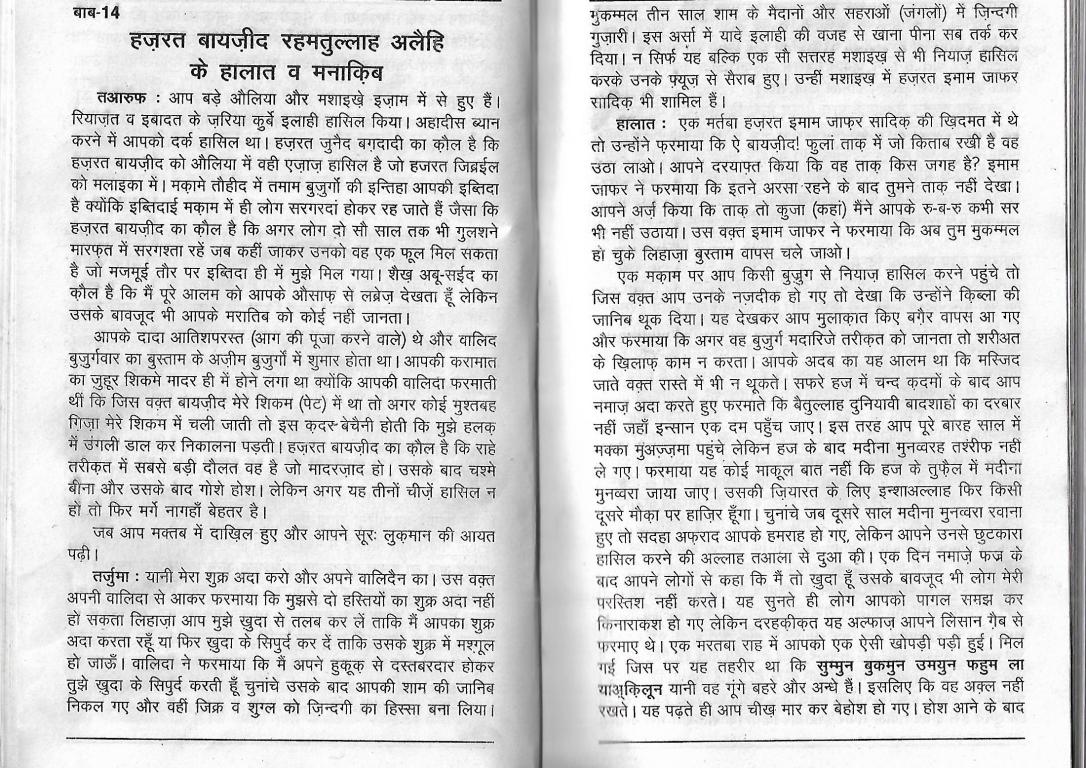 बाब-14
हज़रत बायज़ीद रहमतुल्लाह अलैहि
के हालात व मनाक़िब
तआरुफ : आप बड़े औलिया और मशाइख़े इज़ाम में से हुए हैं।
रियाज़त व इबादत के ज़रिया कुर्बे इलाही हासिल किया। अहादीस ब्यान
करने में आपको दर्क हासिल था। हज़रत जुनैद बग़दादी का क़ौल है कि
हज़रत बायज़ीद को औलिया में वही एज़ाज़ हासिल है जो हजरत जिब्रईल
को मलाइका में। मक़ामे तौहीद में तमाम बुजुर्गो की इन्तिहा आपकी इब्तिदा
है क्योंकि इब्तिदाई मक़ाम में ही लोग सरगरदां होकर रह जाते हैं जैसा कि
हज़रत बायज़ीद का क़ौल है कि अगर लोग दो सौ साल तक भी गुलशने
मारफ़्त में सरगश्ता रहें जब कहीं जाकर उनको वह एक फूल मिल सकता
है जो मजमूई तौर पर इब्तिदा ही में मुझे मिल गया। शैख़ अबू-सईद का
क़ौल है कि मैं पूरे आलम को आपके औसाफ़ से लब्रेज़ देखता हूँ लेकिन
उसके बावजूद भी आपके मरातिब को कोई नहीं जानता।
आपके दादा आतिशपरस्त (आग की पूजा करने वाले) थे और वालिद
बुजुर्गवार का बुस्ताम के अज़ीम बुजुर्गों में शुमार होता था। आपकी करामात
का जुहूर शिकमे मादर ही में होने लगा था क्योंकि आपकी वालिदा फरमाती
थीं कि जिस वक़्त बायज़ीद मेरे शिकम (पेट) में था तो अगर कोई मुश्तबह
गिज़ा मेरे शिकम में चली जाती तो इस क़दर बेचैनी होती कि मुझे हलक़
में उंगली डाल कर निकालना पड़ती। हज़रत बायज़ीद का क़ौल है कि राहे
तरीक़त में सबसे बड़ी दौलत वह है जो मादरज़ाद हो। उसके बाद चश्मे
बीना और उसके बाद गोशे होश। लेकिन अगर यह तीनों चीज़ें हासिल न
हो तो फिर मर्गे नागहाँ बेहतर है।
जब आप मक्तब में दाख़िल हुए और आपने सूरः लुक़मान की आयत
पढ़ी।
तर्जुमा : यानी मेरा शुक्र अदा करो और अपने वालिदैन का। उस वक़्त
अपनी वालिदा से आकर फरमाया कि मुझसे दो हस्तियों का शुक्र अदा नहीं
हो सकता लिहाज़ा आप मुझे ख़ुदा से तलब कर लें ताकि मैं आपका शुक्र
अदा करता रहूँ या फिर ख़ुदा के सिपुर्द कर दें ताकि उसके शुक्र में मश्गूल
हो जाऊँ। वालिदा ने फरमाया कि मैं अपने हुक़ूक़ से दस्तबरदार होकर
तुझे ख़ुदा के सिपुर्द करती हूँ चुनांचे उसके बाद आपकी शाम की जानिब
निकल गए और वहीं जिक्र व शुग्ल को ज़िन्दगी का हिस्सा बना लिया।
मुकम्मल तीन साल शाम के मैदानों और सहराओं (जंगलों) में ज़िन्दगी
गुज़ारी। इस अर्सा में यादे इलाही की वजह से खाना पीना सब तर्क कर
दिया। न सिर्फ यह बल्कि एक सौ सत्तरह मशाइख़ से भी नियाज़ हासिल
करके उनके फ़्यूज़ से सैराब हुए। उन्हीं मशाइख़ में हज़रत इमाम जाफर
सादिक़ भी शामिल हैं।
हालात : एक मर्तबा हज़रत इमाम जाफ़र सादिक़ की ख़िदमत में थे
तो उन्होंने फ़रमाया कि ऐ बायज़ीद! फुलां ताक़ में जो किताब रखी है वह
उठा लाओ। आपने दरयाफ़्त किया कि वह ताक़ किस जगह है? इमाम
जाफर ने फरमाया कि इतने अरसा रहने के बाद तुमने ताक़ नहीं देखा।
आपने अर्ज़ किया कि ताक़ तो कुजा (कहां) मैंने आपके रु-ब-रु कभी सर
भी नहीं उठाया। उस वक़्त इमाम जाफर ने फरमाया कि अब तुम मुकम्मल
हो चुके लिहाज़ा बुस्ताम वापस चले जाओ।
एक मक़ाम पर आप किसी बुज़ुग से नियाज़ हासिल करने पहुंचे तो
जिस वक़्त आप उनके नज़दीक हो गए तो देखा कि उन्होंने क़िब्ला की
जानिब थूक दिया। यह देखकर आप मुलाक़ात किए बग़ैर वापस आ गए
और फरमाया कि अगर वह बुजुर्ग मदारिजे तरीक़त को जानता तो शरीअत
के ख़िलाफ़ काम न करता। आपके अदब का यह आलम था कि मस्जिद
जाते वक़्त रास्ते में भी न थूकते। सफरे हज में चन्द क़दमों के बाद आप
नमाज़ अदा करते हुए फरमाते कि बैतुल्लाह दुनियावी बादशाहों का दरबार
नहीं जहाँ इन्सान एक दम पहुँच जाए। इस तरह आप पूरे बारह साल में
मक्का मुअज़्ज़मा पहुंचे लेकिन हज के बाद मदीना मुनव्वरह तश्रीफ नहीं
ले गए। फरमाया यह कोई माक़ूल बात नहीं कि हज के तुफ़ैल में मदीना
मुनव्वरा जाया जाए। उसकी ज़ियारत के लिए इन्शाअल्लाह फिर किसी
दूसरे मौक़ा पर हाज़िर हूँगा। चुनांचे जब दूसरे साल मदीना मुनव्वरा रवाना
हुए तो सदहा अफ़राद आपके हमराह हो गए, लेकिन आपने उनसे छुटकारा
हासिल करने की अल्लाह तआला से दुआ की। एक दिन नमाज़े फज्र के
बाद आपने लोगों से कहा कि मैं तो ख़ुदा हूँ उसके बावजूद भी लोग मेरी
परस्तिश नहीं करते। यह सुनते ही लोग आपको पागल समझ कर
किनाराकश हो गए लेकिन दरहक़ीक़त यह अल्फाज़ आपने लिसान ग़ैब से
फरमाए थे। एक मरतबा राह में आपको एक ऐसी खोपड़ी पड़ी हुई। मिल
गई जिस पर यह तहरीर था कि सुम्मुन बुकमुन उमयुन फहुम ला
याअ़क़िलून यानी वह गूंगे बहरे और अन्धे हैं। इसलिए कि वह अक़्ल नहीं
रखते। यह पढ़ते ही आप चीख़ मार कर बेहोश हो गए। होश आने के बाद